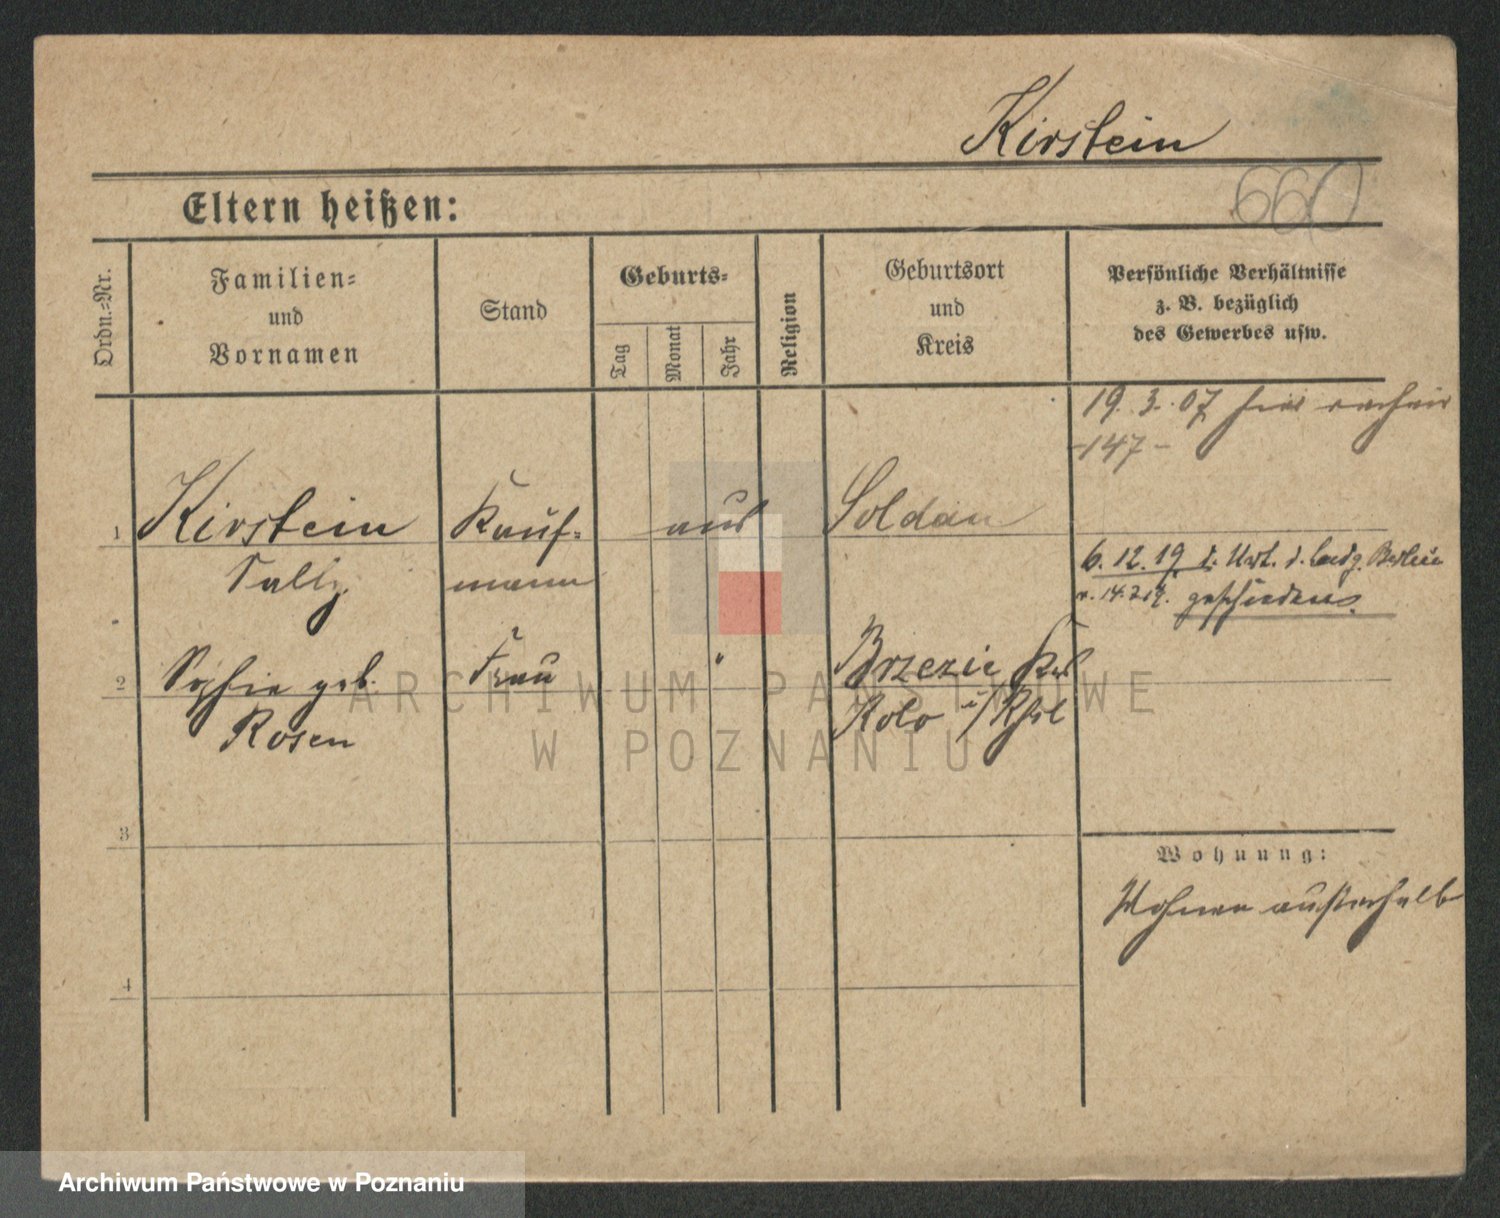 Kirstein
660
Eltern heißen:
Ordn.-Nr.
Familien-
und
Vornamen
Stand
Geburts-
Tag
Monat
Jahr
Religion
Geburtsort
und
Kreis
Persönliche Verhältnisse
z. B. bezüglich
des Gewerbes usw.
19. 3. 07 hier
-147-
1 Kirstein Kauf- aus Soldau
Sally mann
6. 12. 19 d. Urt. d. Landg. Berlin
v. 14.2.19. geschieden.
2 Sophie geb. Frau " Brzezie Krs
Rosen Kolo i/
3
4
Wohnung:
Wohnen ausserhalb
ARCHIWUM PAŃSTWOWE
W POZNANIU
Archiwum Państwowe w Poznaniu